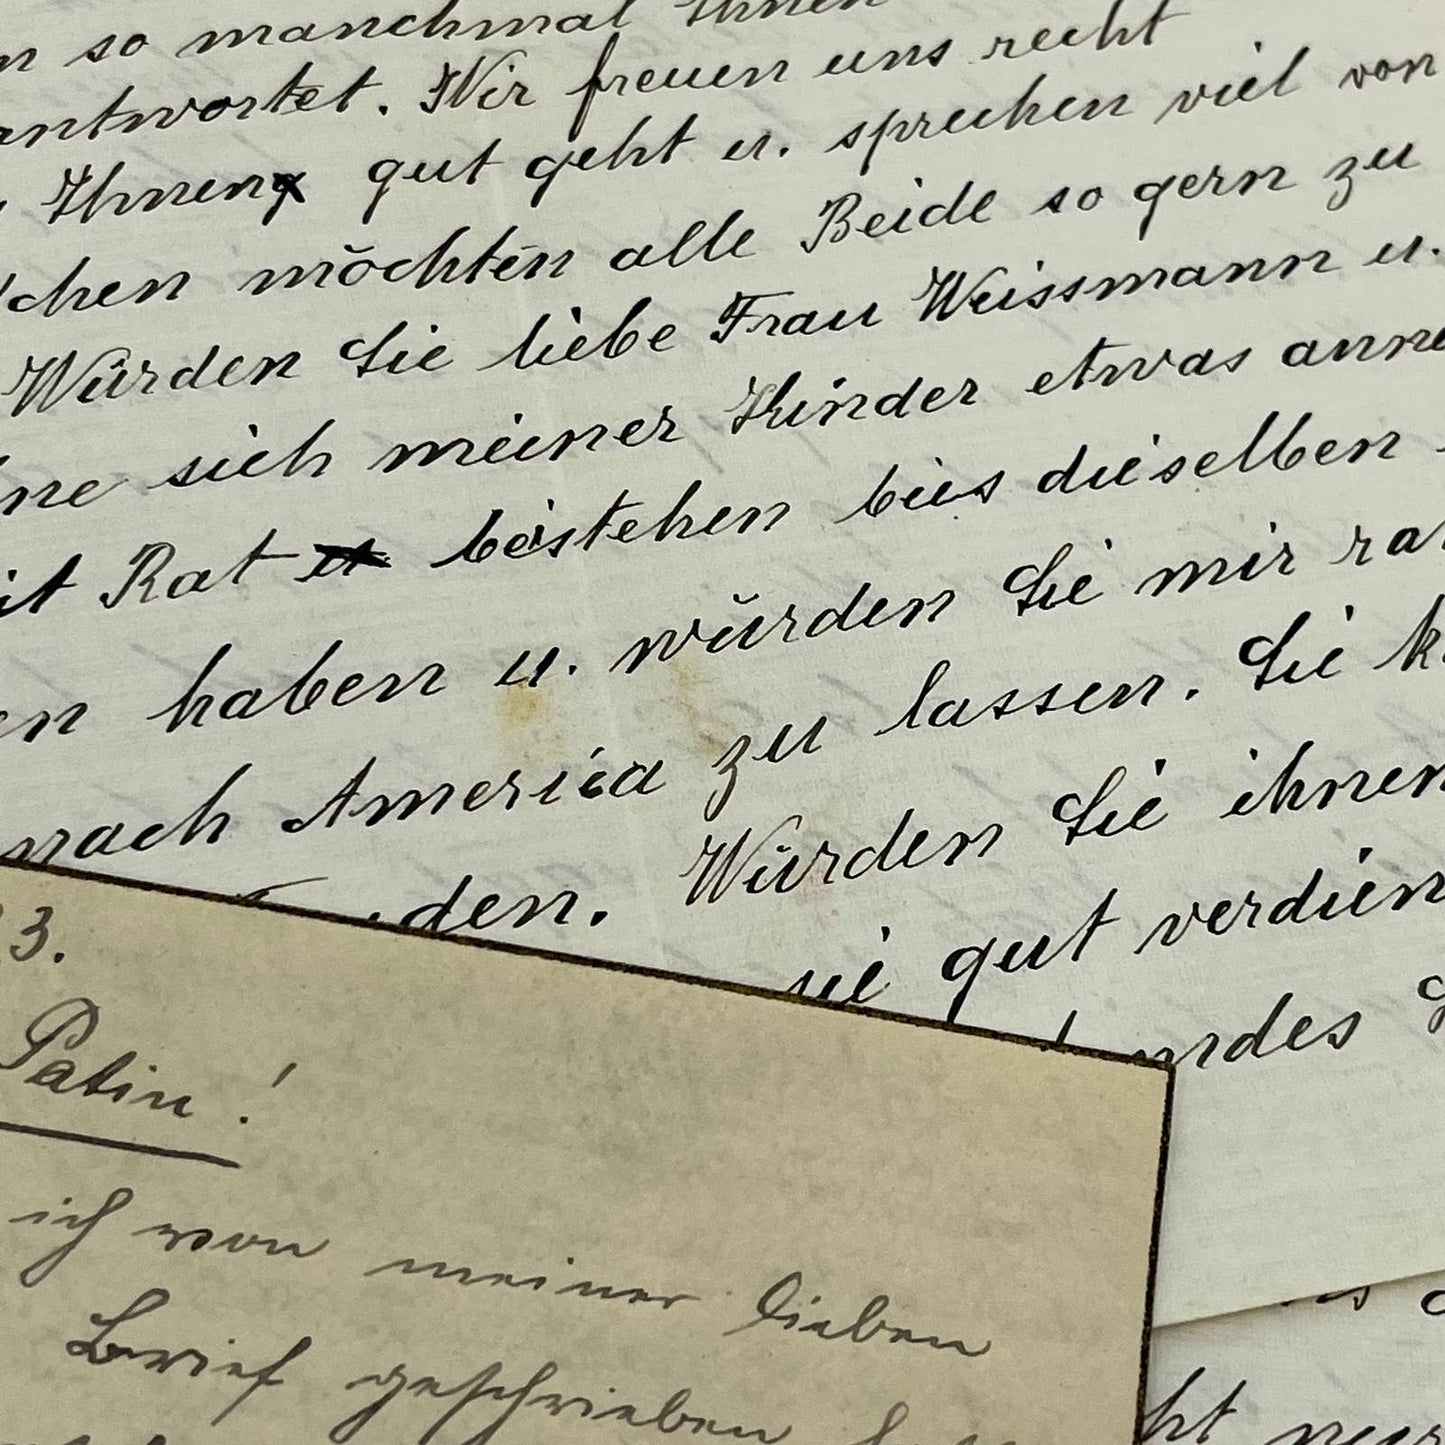 so manchmal Ihnen
antwortet. Wir freuen uns recht
Ihnen gut geht u. sprechen viel von
chen möchten alle Beide so gern zu
Würden Sie liebe Frau Weissmann u.
ne sich meiner Kinder etwas anne
it Rat beistehen bis dieselben
en haben u. würden Sie mir rat
nach America zu lassen. Sie k
den. Würden Sie ihnen
sie gut verdien
ndes
3.
Patin!
ich von meiner lieben
Brief geschrieben
ht nur